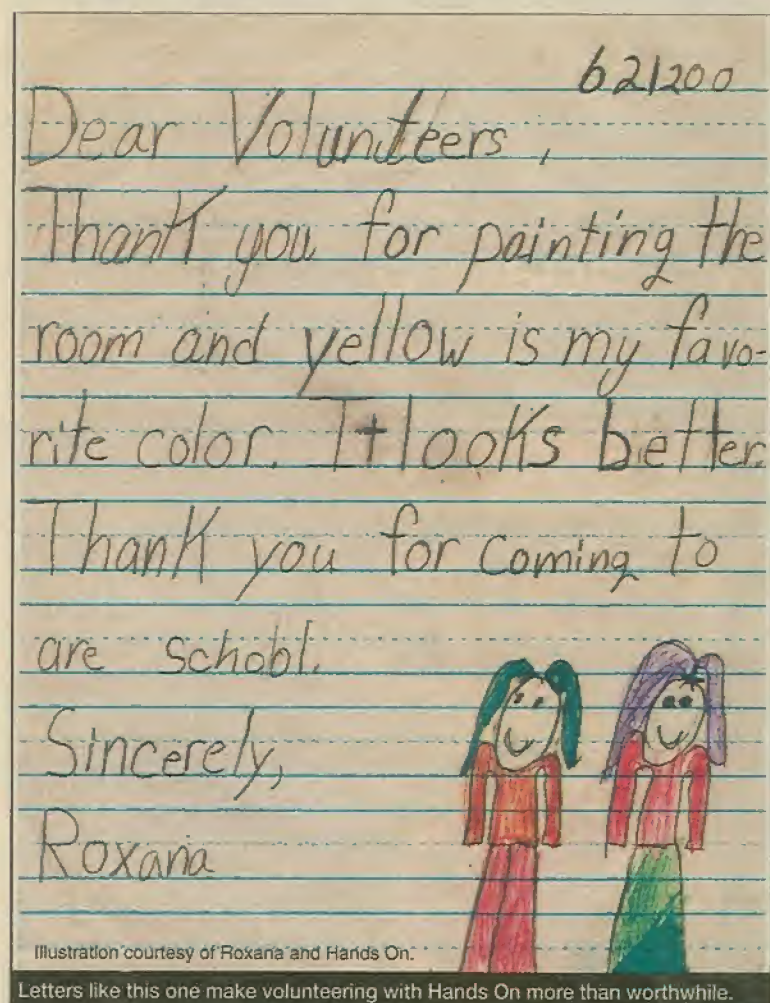 621200
Dear Volunteers,
Thank you for painting the
room and yellow is my favo-
rite color. It looks better.
Thank you for coming to
are school.
Sincerely,
Roxana
Illustration courtesy of Roxana and Hands On.
Letters like this one make volunteering with Hands On more than worthwhile.